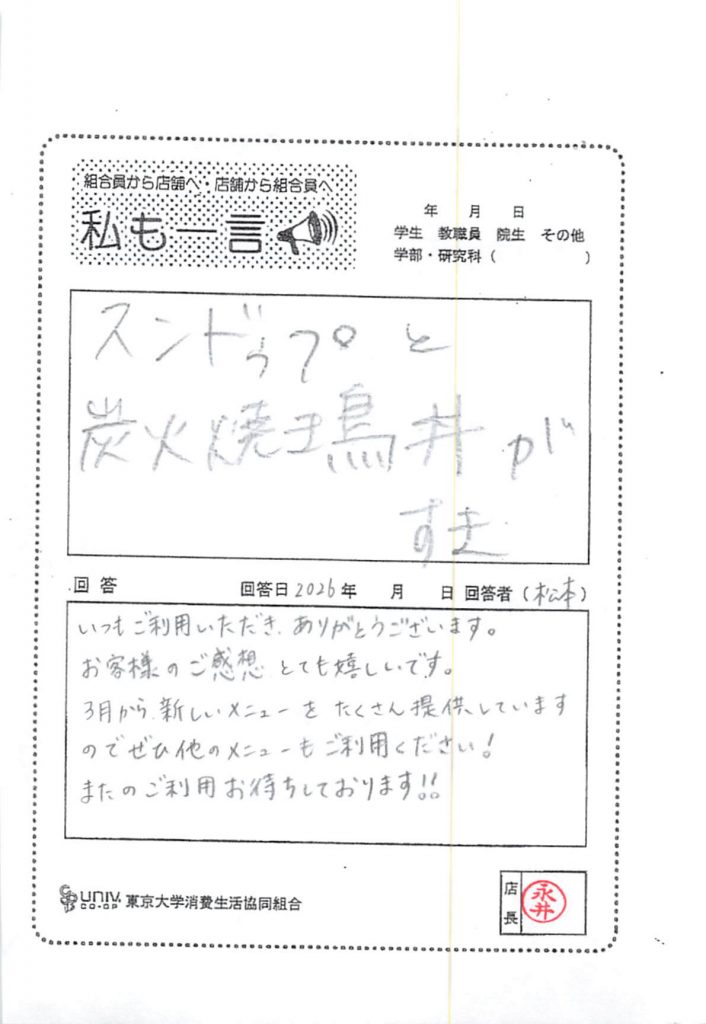 組合員から店舗へ・店舗から組合員へ
私も一言
年 月 日
学生 教職員 院生 その他
学部・研究科 ( )
スンドゥプと
炭火焼き鳥丼が
すき
回答 回答日 2026年 月 日 回答者 (松本)
いつもご利用いただき、ありがとうございます。
お客様のご感想とても嬉しいです。
3月から新しいメニューをたくさん提供しています
のでぜひ他のメニューもご利用ください!
またのご利用お待ちしております!!
UNIV. CO-OP 東京大学消費生活協同組合
店長 永井